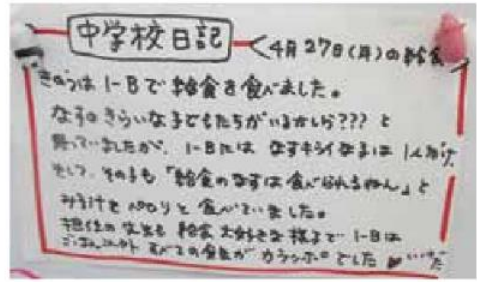 中学校日記
4月27日(月)の給食
きのうは1-Bで給食を食べました。
なすのきらいな子どもたちがいるかしら???と
思っていましたが、1-Bには なすキライな子は1人だけ。
そして、その子も「給食のなすは食べられるねん」と
みそ汁をペロリと食べていました。
担任の先生も給食大好きな様子で1-Bは
ごはん以外すべての食缶がカラッポでした♥